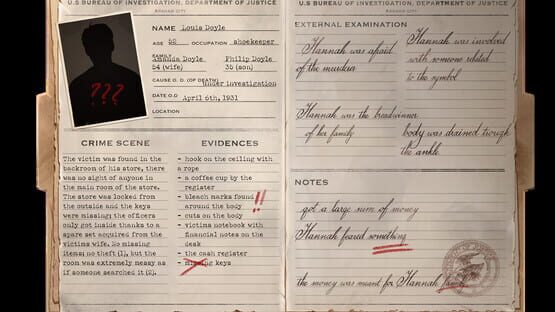 U.S BUREAU OF INVESTIGATION, DEPARTMENT OF JUSTICE
???
NAME Louis Doyle
AGE 62 OCCUPATION shoekeeper
FAMILY
Amanda Doyle Philip Doyle
54 (wife) 35 (son)
CAUSE O. D. (OF DEATH) Under investigation
DATE O.D April 6th, 1931
LOCATION
CRIME SCENE
The victim was found in the
backroom of his store, there
was no sight of anyone in
the main room of the store.
The store was locked from
the outside and the keys
were missing; the oficers
only got inside thanks to a
spare set acquired from the
victims wife. No missing
items; no theft (1), but the
room was extremely messy as
if someone searched it (2).
EVIDENCES
- hook on the ceiling with
a rope
- a coffee cup by the
register
- bleach marks found
around the body
!!
- cuts on the body
- victims notebook with
financial notes on the
desk
- the cash register
- missing keys
U.S BUREAU OF INVESTIGATION, DEPARTMENT OF JUSTICE
EXTERNAL EXAMINATION
Hannah was afraid
of the murders
Hannah was involved
with someone related
to the symbol
Hannah was the breadwinner
of her family
body was drained trough
the ankle
NOTES
got a large sum of money
Hannah feared something
the money was meant for Hannah